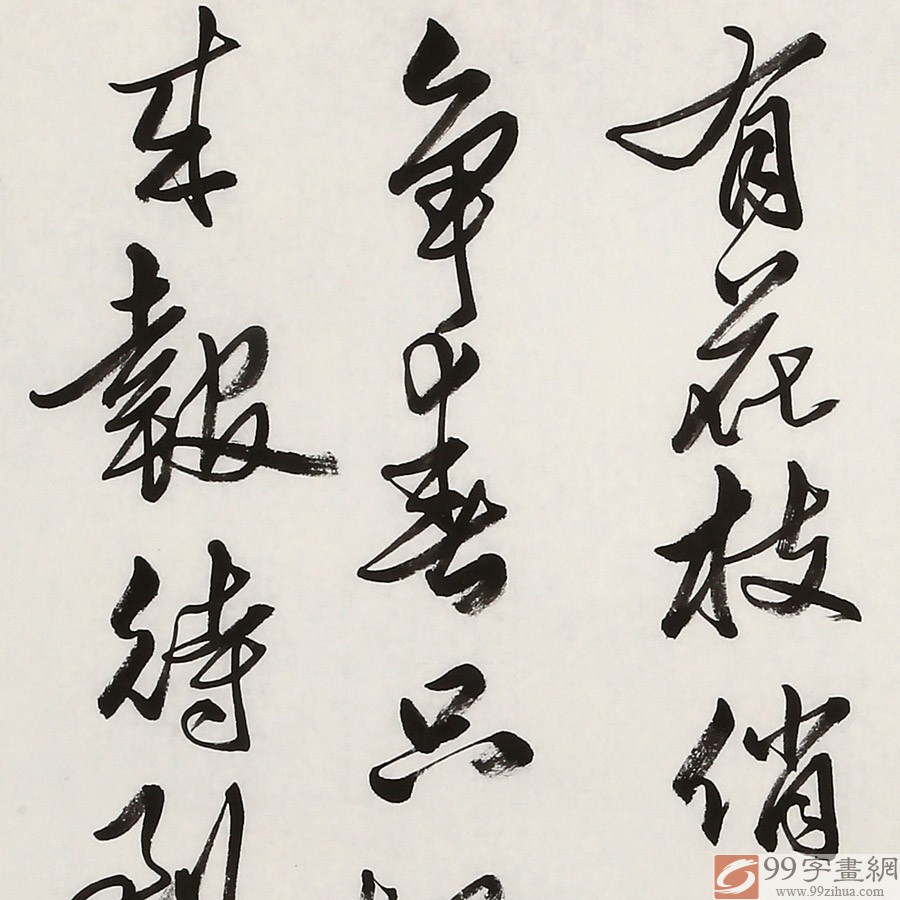 有花枝俏
争春只
来報待到
99字畫網
www.99zihua.com